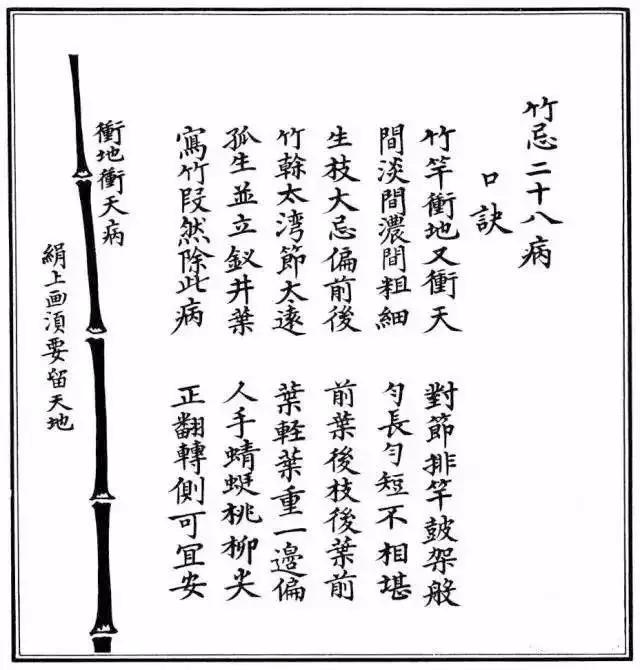 竹忌二十八病
口訣
竹竿衝地又衝天
對節排竿鼓架般
間淡間濃間粗細
勻長勻短不相堪
生枝大忌偏前後
前葉後枝後葉前
竹榦太湾節太遠
葉軽葉重一邊偏
孤生並立釵井葉
人手蜻蜓桃柳尖
寫竹叚然除此病
正翻轉側可宜安
衝地衝天病
絹上画湏要留天地